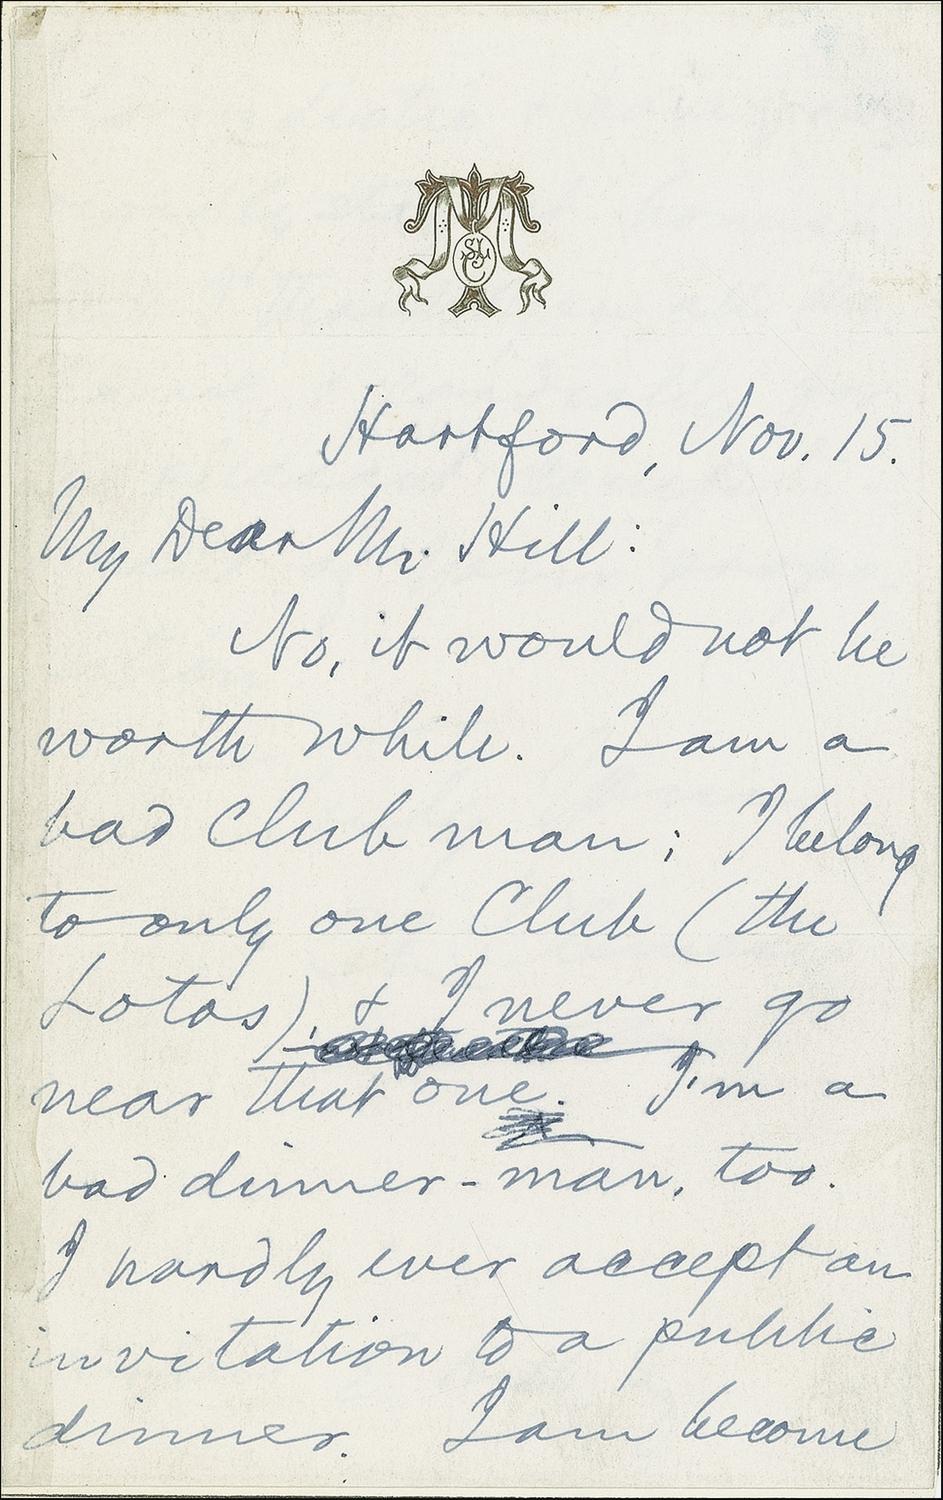 SLC
Hartford, Nov. 15.
My Dear Mr. Hill:
No, it would not be
worth while. I am a
bad Club man; I belong
to only one Club (the
Lotos), & I never go
near that one. I'm a
bad dinner-man, too.
I hardly ever accept an
invitation to a public
dinner. I am become